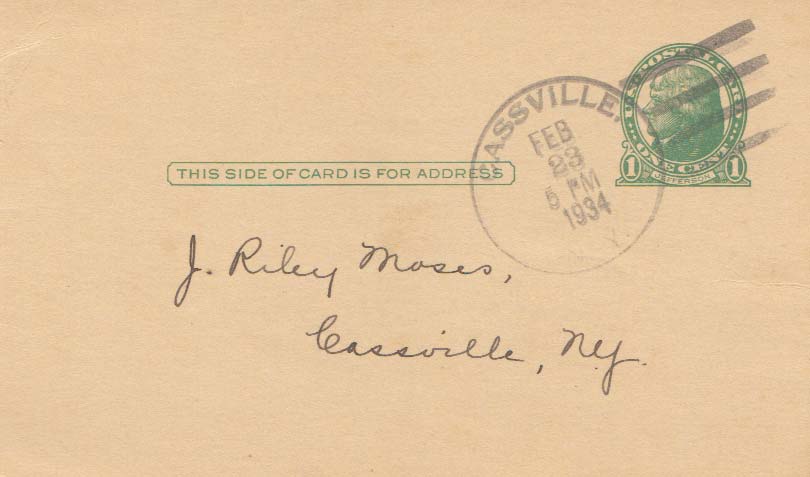 U.S. POSTAL CARD
ONE CENT
1 JEFFERSON 1
CASSVILLE,
FEB
23
5 PM
1934
THIS SIDE OF CARD IS FOR ADDRESS
J. Riley Moses,
Cassville, N.Y.